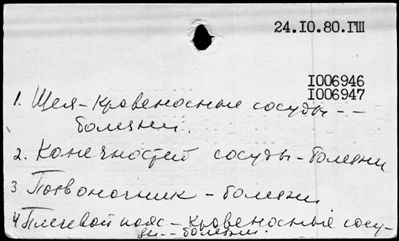 24.10.80.ГШ
1006946
1006947
1. Шея-Кровеносные сосуды--
болезни.
2. Конечностей сосуды-болезни
3 Позвоночник - болезни
4 Плечевой пояс - Кровеносные сосу-
ды -- болезни.